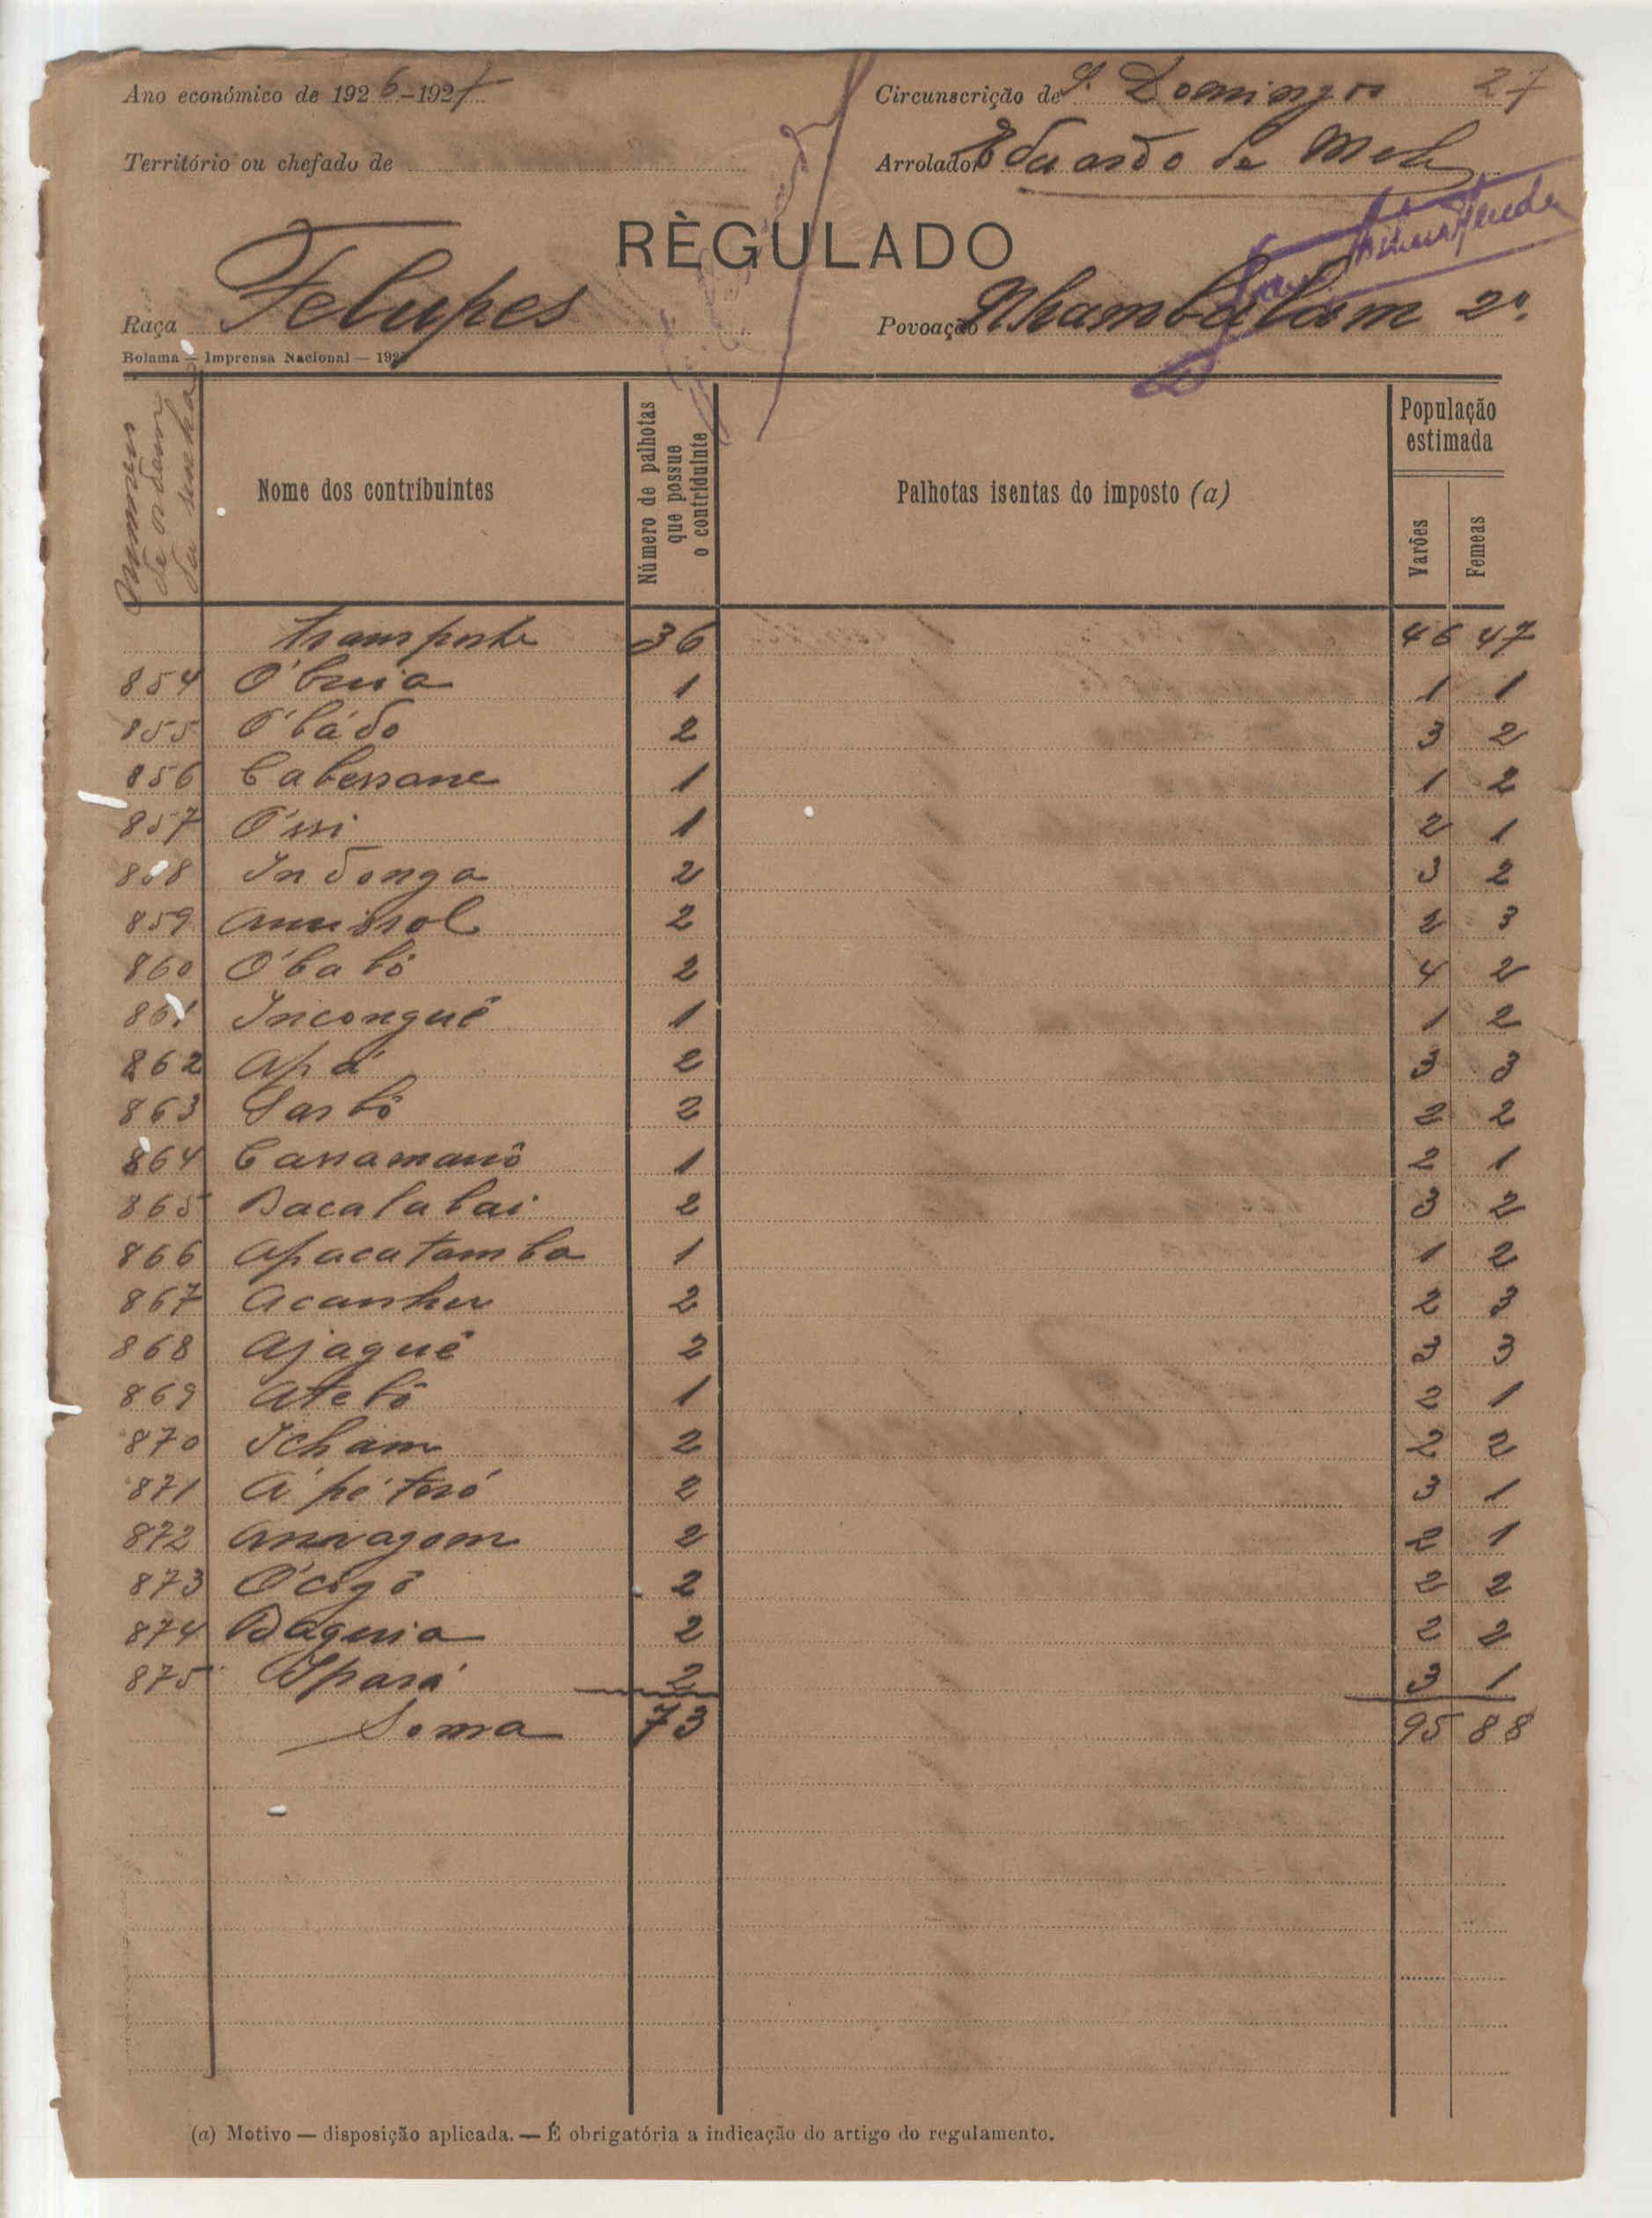 Ano económico de 1926-1927 Circunscrição de S. Domingos 27
Território ou chefado de Arrolador Eduardo de Melo
RÈGULADO
Raça Felupes Povoação Nhambalam 2º.
Bolama — Imprensa Nacional — 192
Numero de ordem da senha
Nome dos contribuintes
Número de palhotas que possue o contriduinte
Palhotas isentas do imposto (a)
População estimada
Varões Femeas
Transporte 36 46 47
854 O'buia 1 1 1
855 O'bádo 2 3 2
856 Cabessane 1 1 2
857 O'ssi 1 2 1
858 Indonga 2 3 2
859 Amissol 2 2 3
860 O'babô 2 4 2
861 Inconguê 1 1 2
862 Apá 2 3 3
863 Sasbô 2 2 2
864 Cassamanô 1 2 1
865 Bacalabai 2 3 2
866 Apacatomba 1 1 2
867 Acanhu 2 2 3
868 Ajaguê 2 3 3
869 Atebô 1 2 1
870 Icham 2 2 2
871 A'pé'toró 2 3 1
872 2 2 1
873 O'cogô 2 2 2
874 Baguia 2 2 2
875 Spará 2 3 1
Soma 73 95 88
(a) Motivo — disposição aplicada. — É obrigatória a indicação do artigo do regulamento.